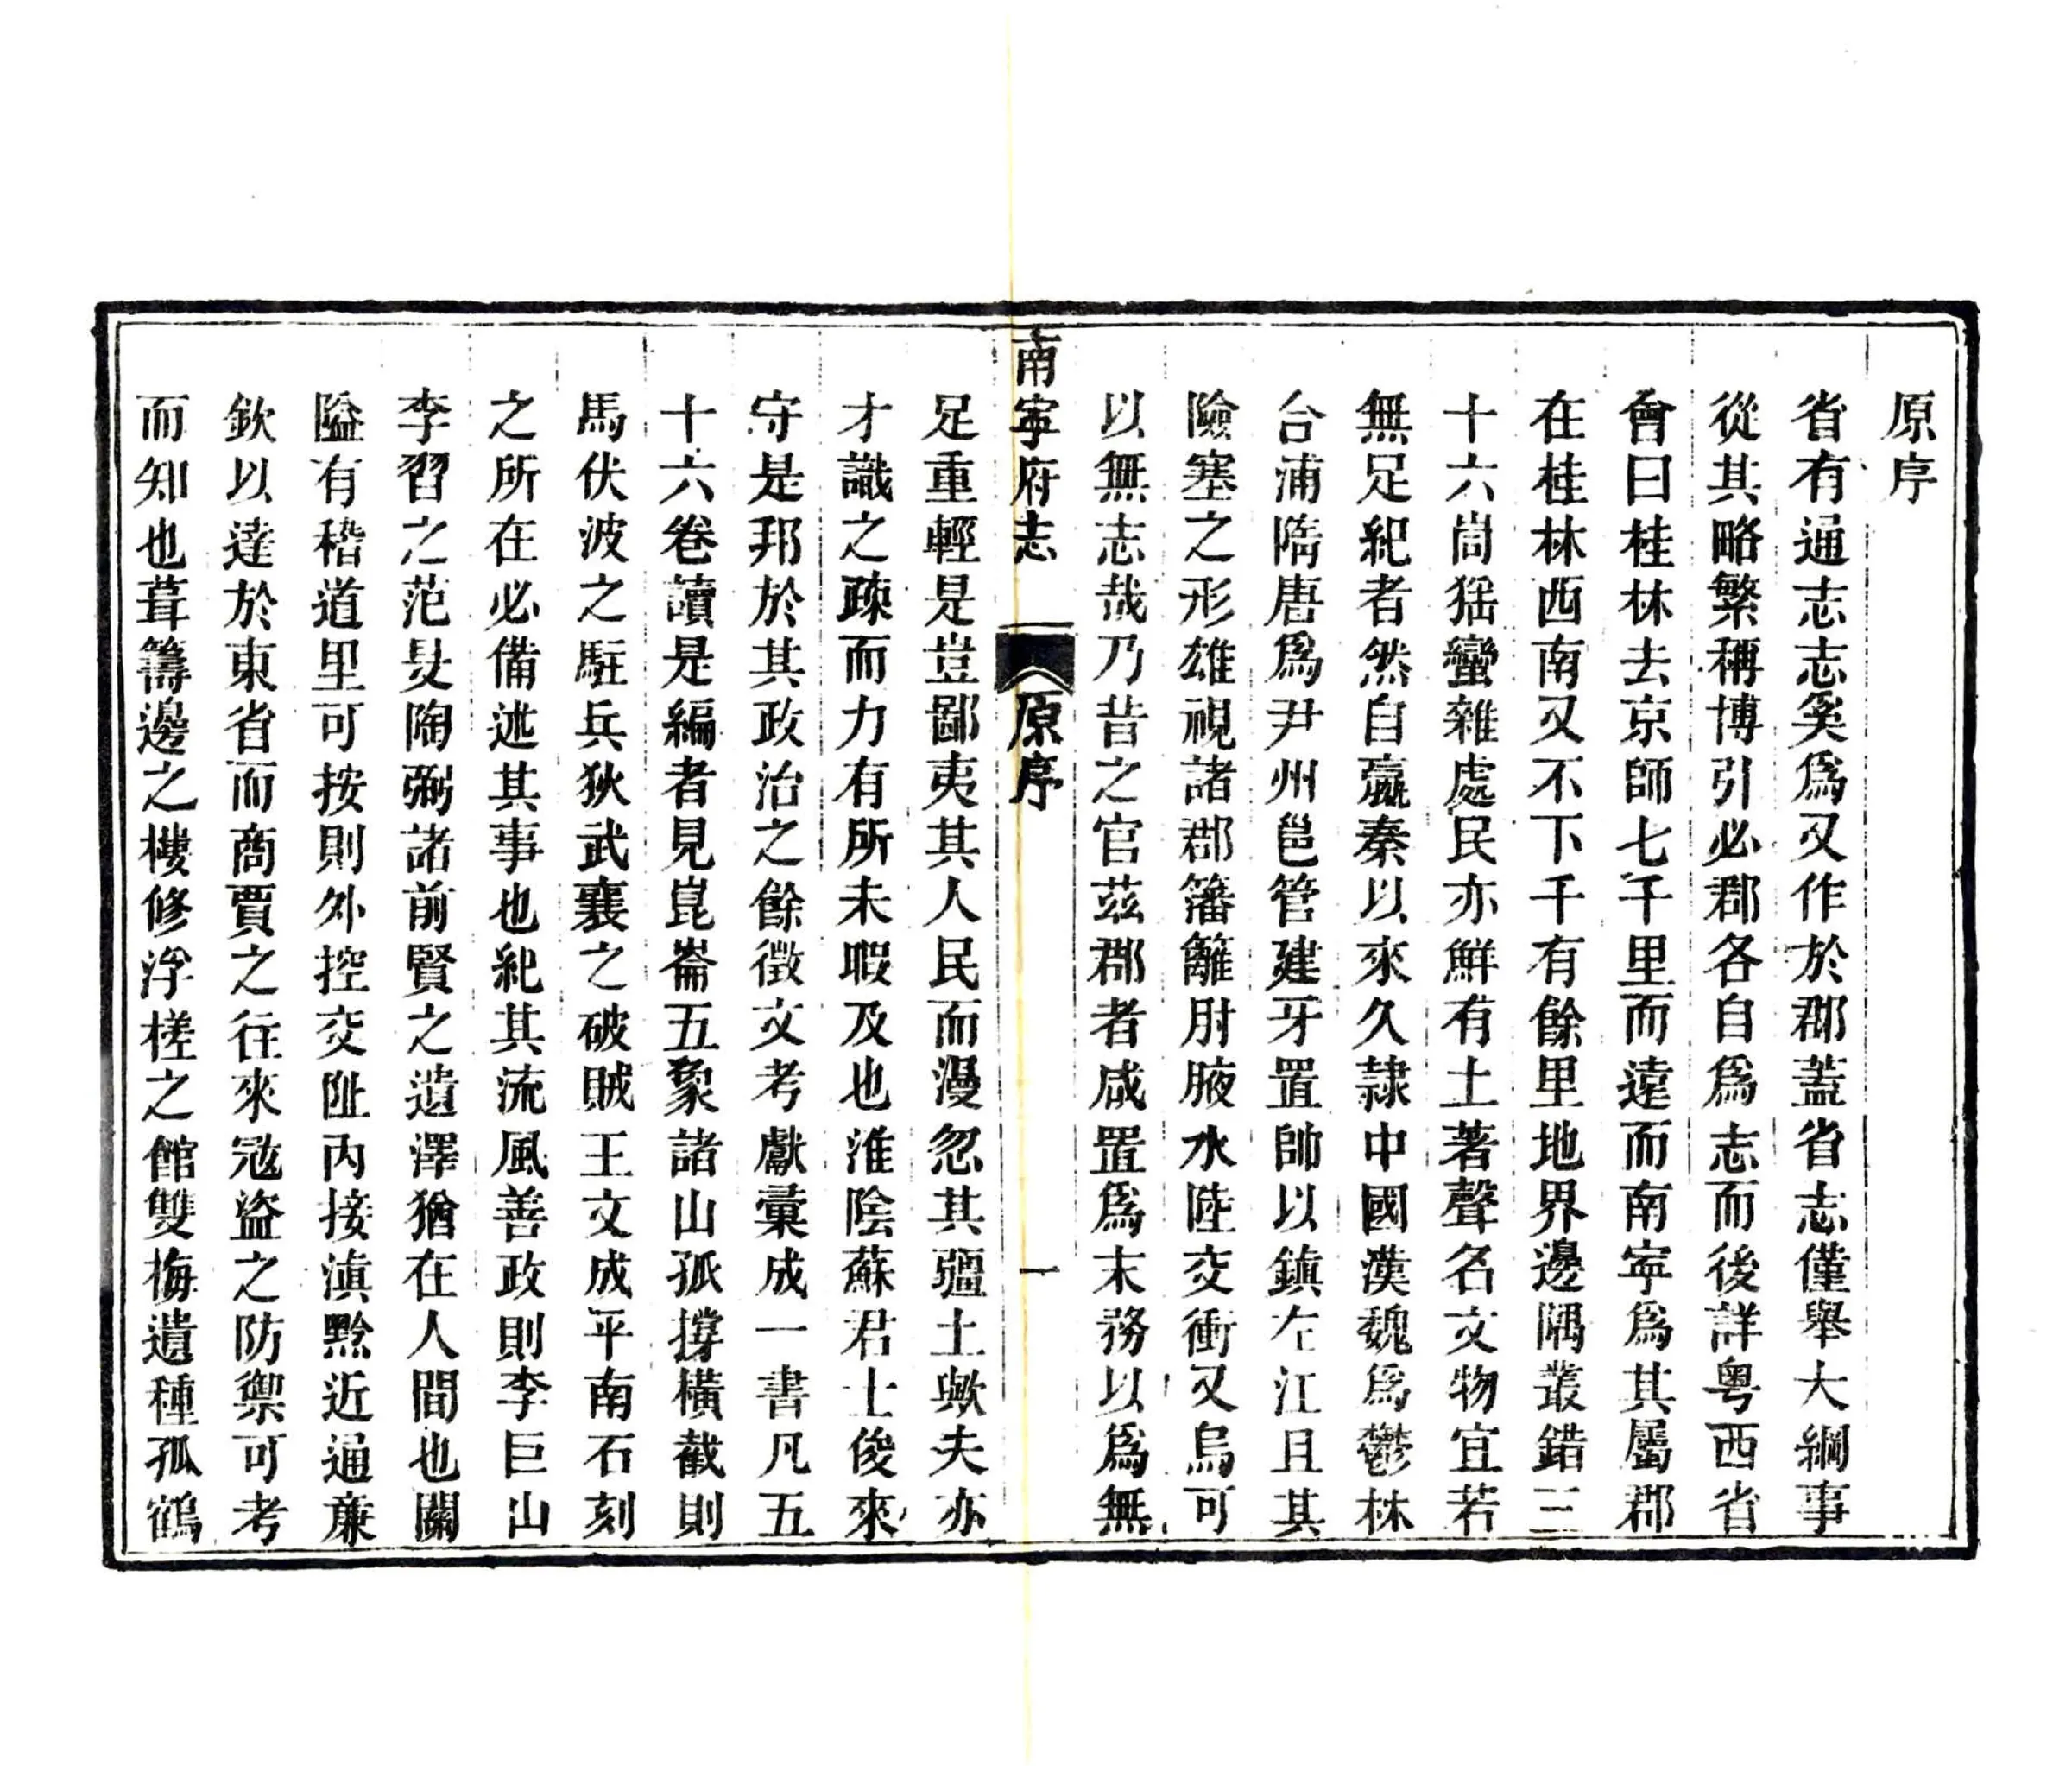 原序
省有通志志奚爲又作於郡蓋省志僅舉大綱事
從其略繁稱博引必郡各自爲志而後詳粤西省
會曰桂林去京師七千里而遠而南寧爲其屬郡
在桂林西南又不下千有餘里地界邊隅叢錯三
十六峝猺蠻雜處民亦鮮有土著聲名文物宜若
無足紀者然自嬴秦以來久隷中國漢魏爲鬱林
合浦隋唐爲尹州邕管建牙置帥以鎮左江且其
險塞之形雄視諸郡籓籬肘腋水陸交衝又烏可
以無志哉乃昔之官茲郡者咸置爲末務以爲無
南寧府志 原序 一
足重輕是豈鄙夷其人民而漫忽其疆土歟夫亦
才識之疎而力有所未暇及也淮陰蘇君士俊來
守是邦於其政治之餘徵文考獻彙成一書凡五
十六卷讀是編者見崑崙五象諸山孤撐橫截則
馬伏波之駐兵狄武襄之破賊王文成平南石刻
之所在必備述其事也紀其流風善政則李巨山
李習之范旻陶弼諸前賢之遺澤猶在人間也關
隘有稽道里可按則外控交阯內接滇黔近通亷
欽以達於東省而商賈之往來冦盜之防禦可考
而知也葺籌邊之樓修浮槎之館雙梅遺種孤鶴